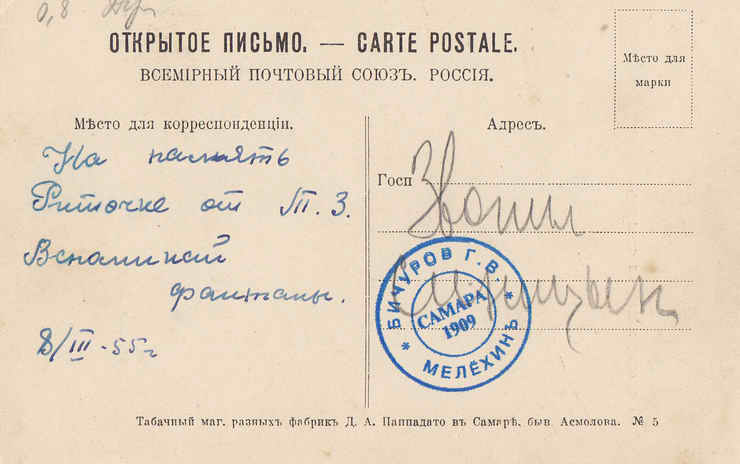 0,8
ОТКРЫТОЕ ПИСЬМО. — CARTE POSTALE.
ВСЕМІРНЫЙ ПОЧТОВЫЙ СОЮЗЪ. РОССІЯ.
Мѣсто для
марки
Мѣсто для корреспонденціи.
На память
Риточке от Т. З.
Вспоминай
фонтаны.
8/III-55г
Адресъ.
Госп
Звонил
БИЧУРОВ Г. В.
САМАРА
1909
МЕЛЁХИНЪ
Табачный маг. разныхъ фабрикъ Д. А. Паппадато въ Самарѣ, быв. Асмолова. № 5